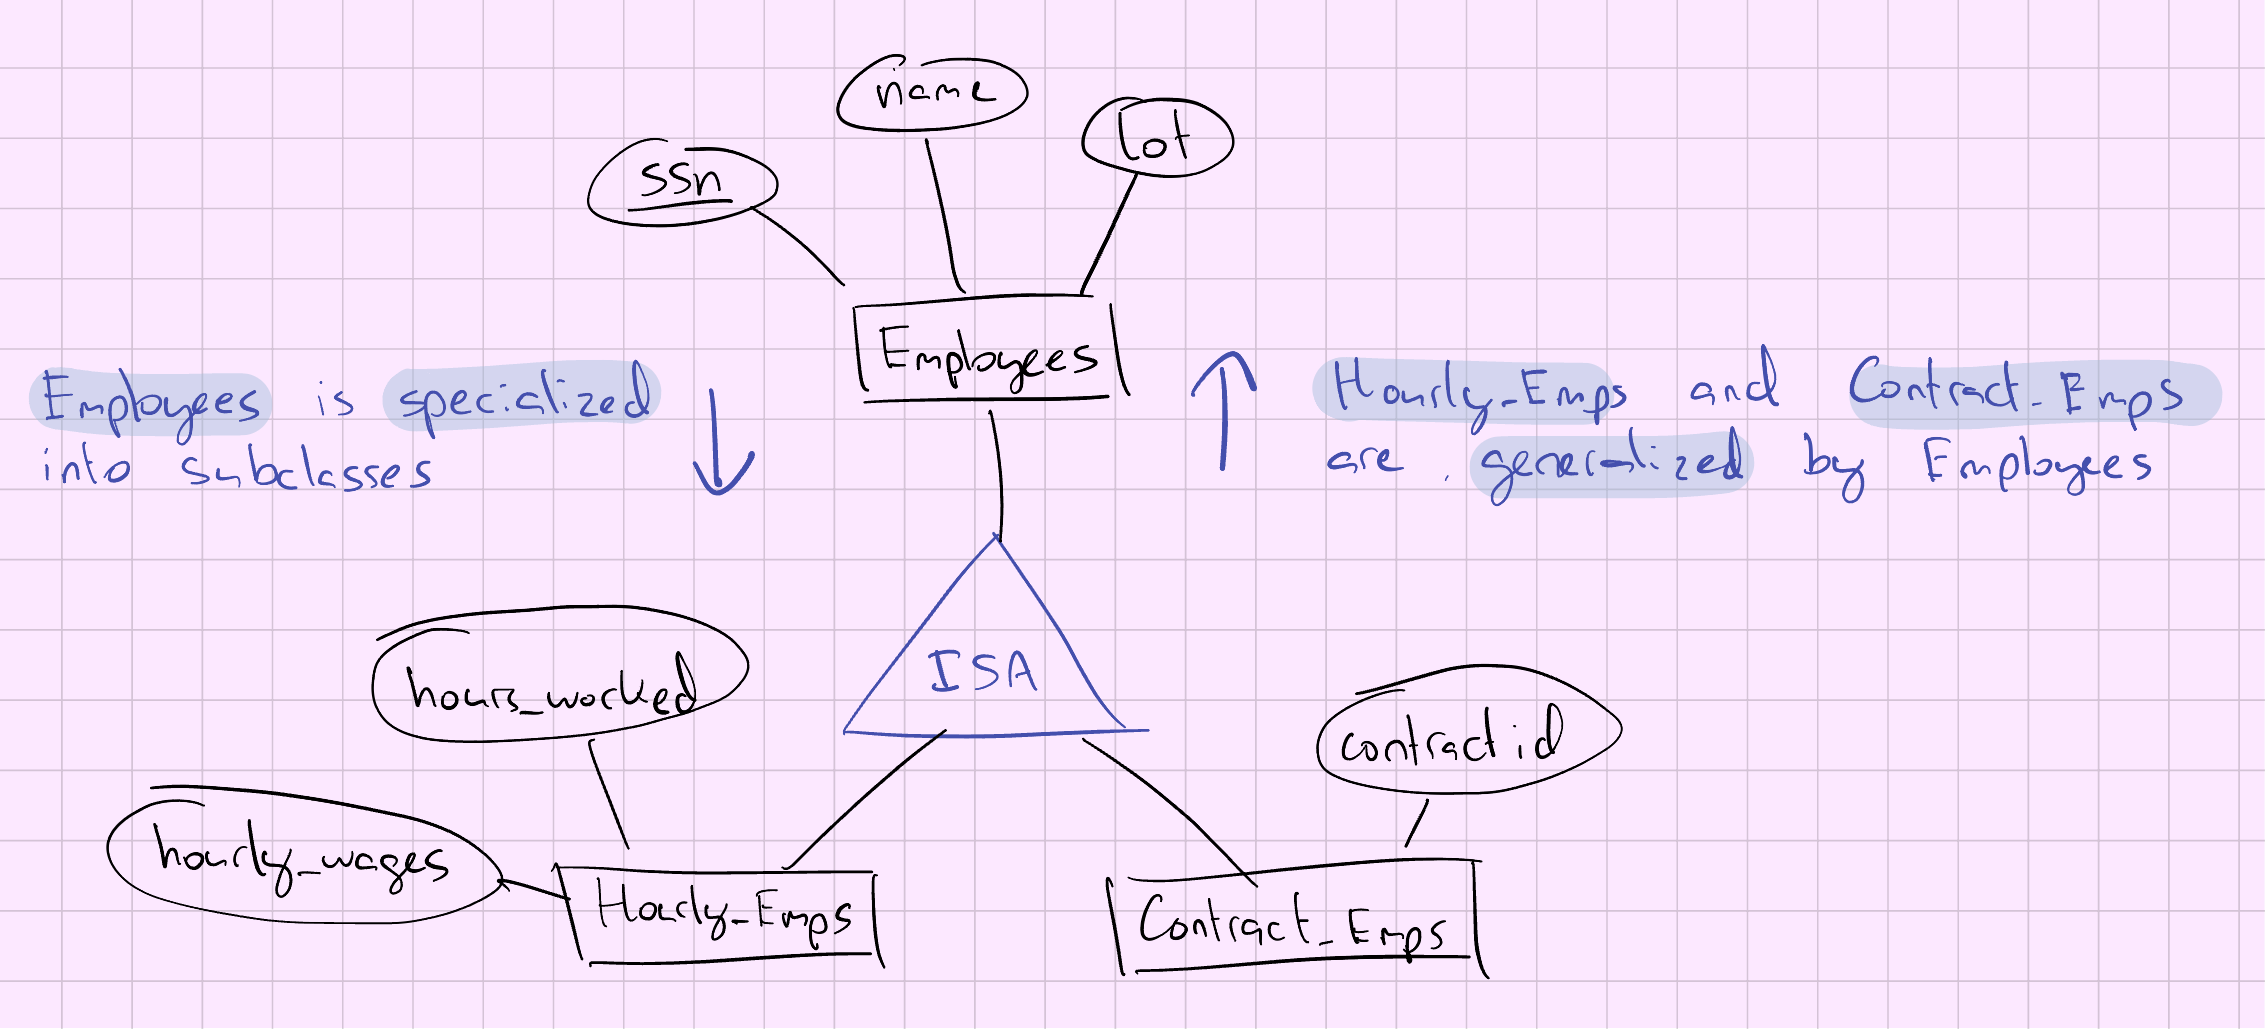 name
lot
ssn
Employees
Employees is specialized
into subclasses
Hourly_Emps and Contract_Emps
are generalized by Employees
ISA
hours_worked
contractid
hourly_wages
Hourly_Emps
Contract_Emps